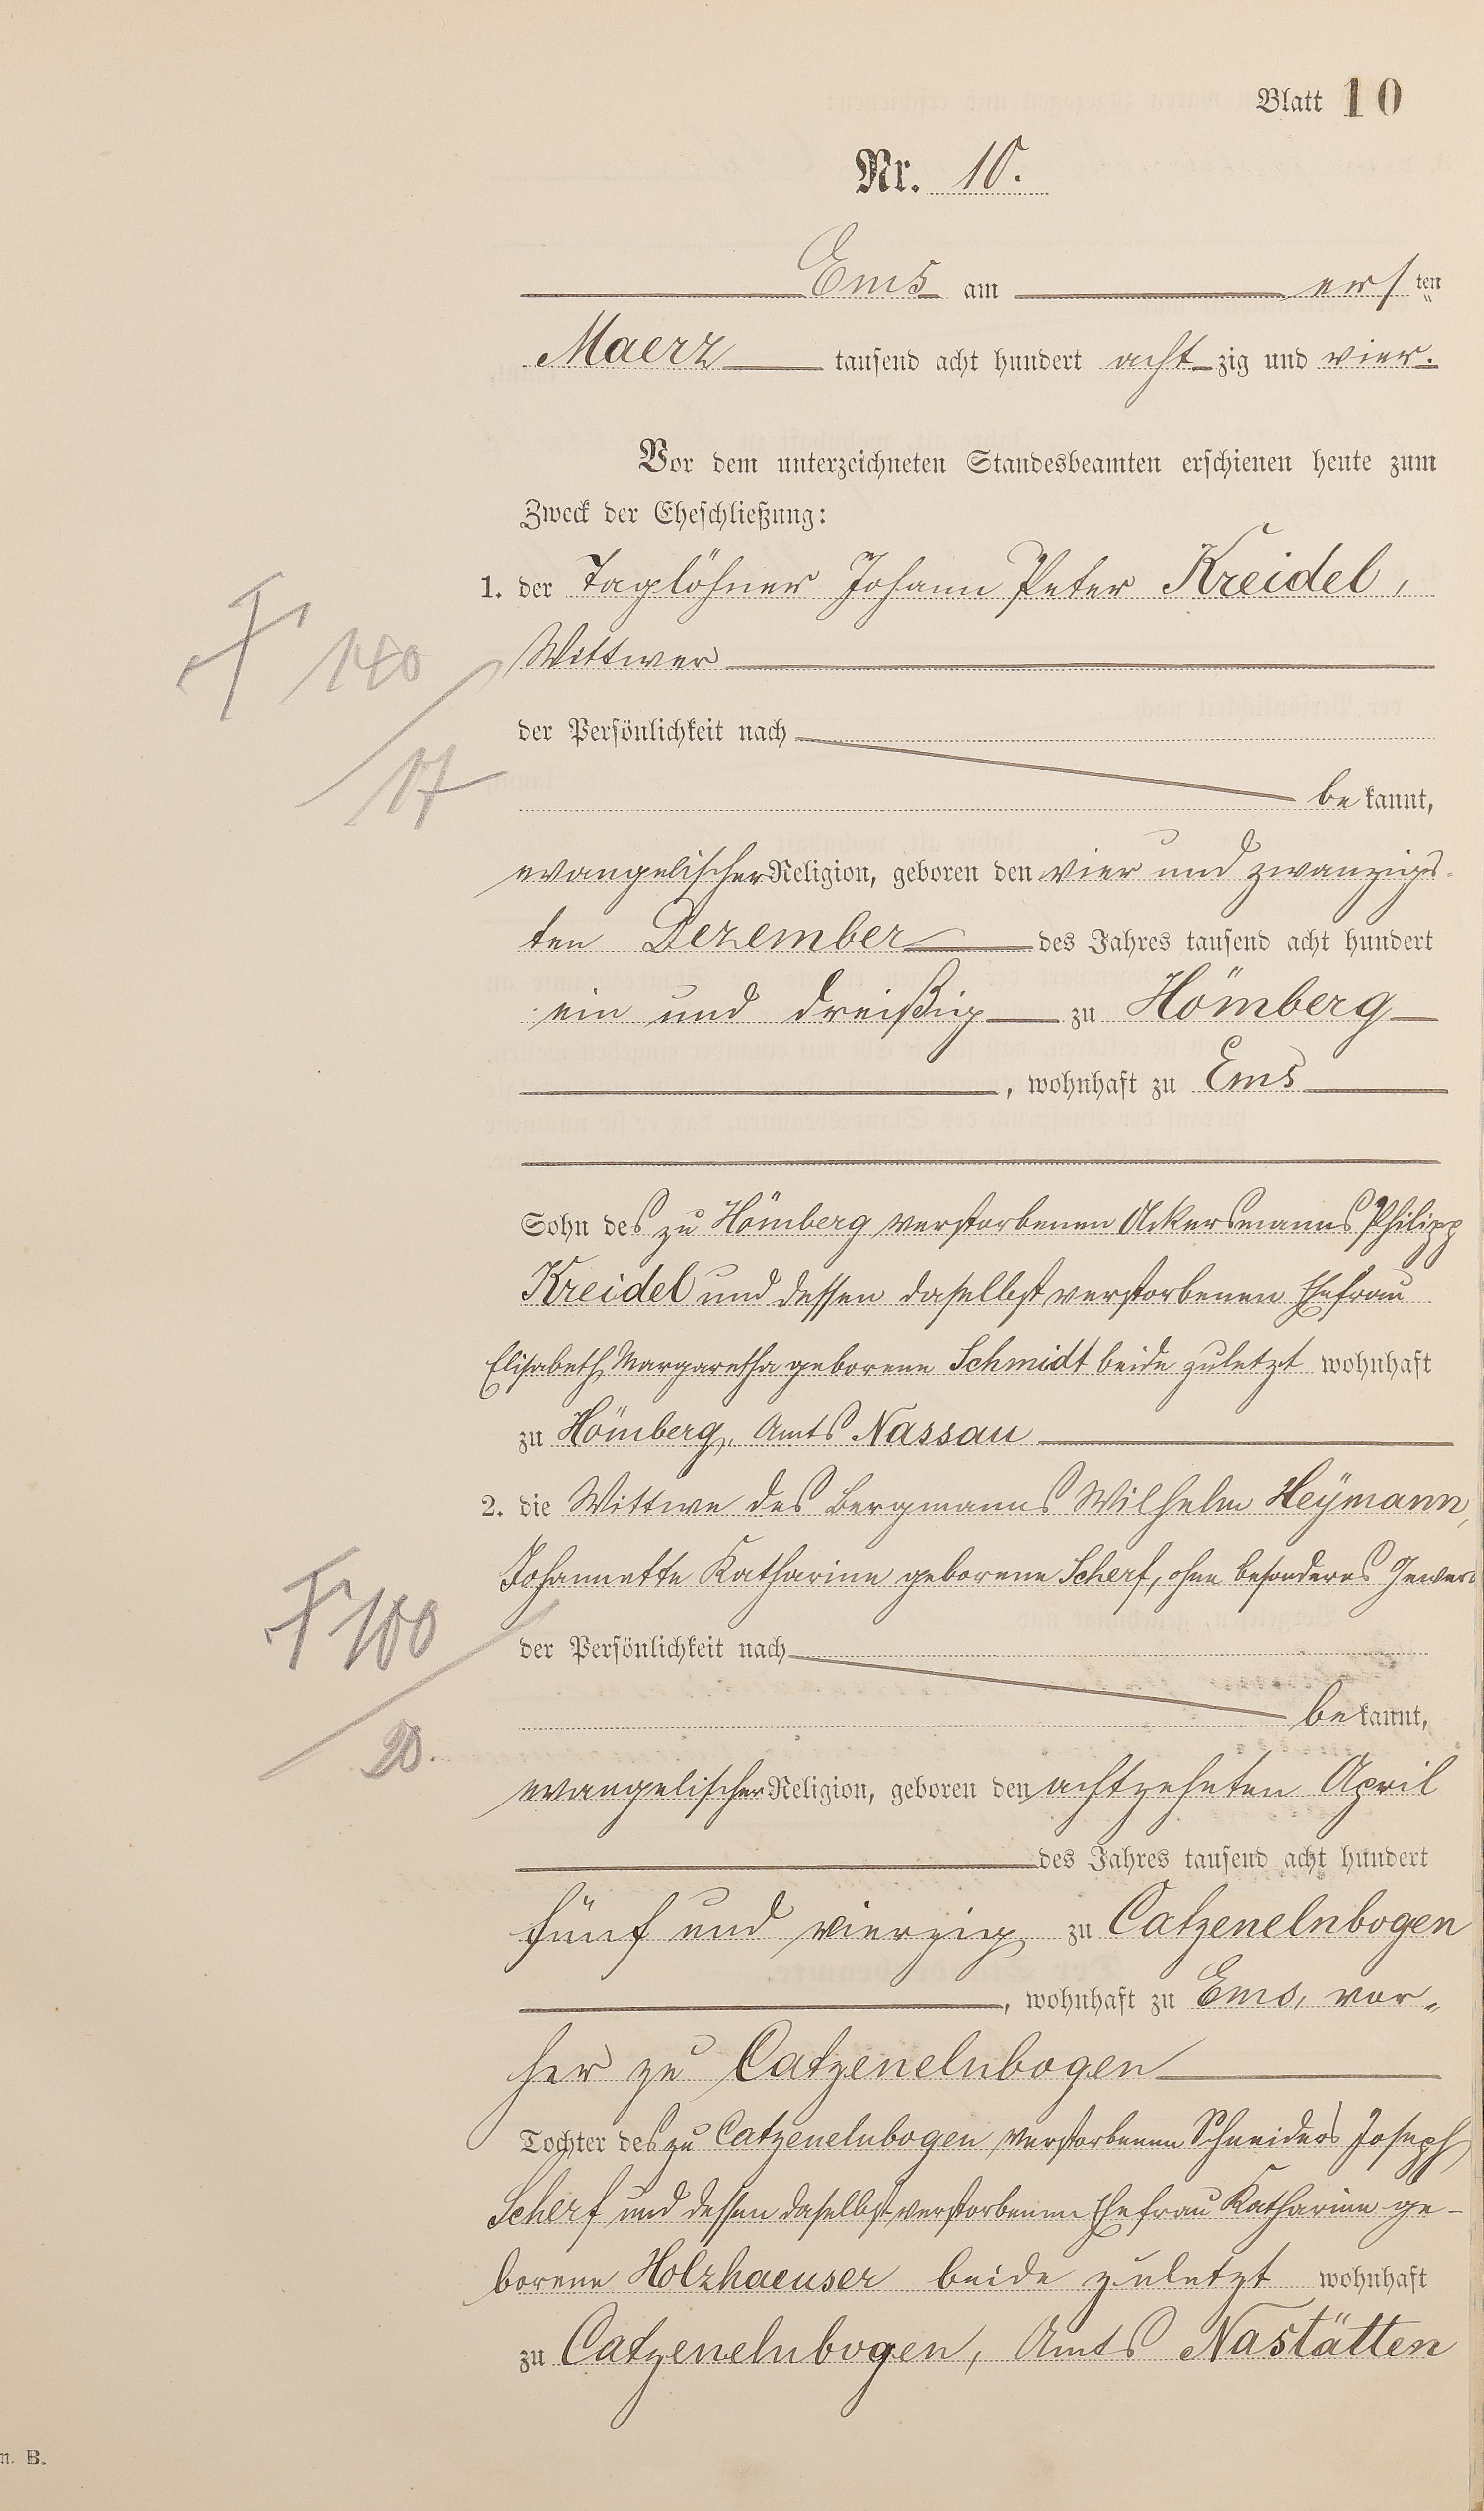 Blatt 10
Nr. 10.
Ems am ersten
Maerz tausend acht hundert achtzig und vier.
Vor dem unterzeichneten Standesbeamten erschienen heute zum
Zweck der Eheschließung:
1. der Taglöhner Johann Peter Kreidel,
Wittwer
der Persönlichkeit nach
bekannt,
evangelischer Religion, geboren den vier und zwanzigs-
ten Dezember des Jahres tausend acht hundert
ein und dreißig zu Hömberg
, wohnhaft zu Ems
Sohn des zu Hömberg verstorbenen Ackersmanns Philipp
Kreidel und dessen daselbst verstorbenen Ehefrau
Elisabeth Margaretha geborene Schmidt beide zuletzt wohnhaft
zu Hömberg, Amts Nassau
2. die Wittwe des Bergmanns Wilhelm Heymann,
Johannette Katharine geborene Scherf, ohne besonderes Gewerb
der Persönlichkeit nach
bekannt,
evangelischer Religion, geboren den achtzehnten April
des Jahres tausend acht hundert
fünf und vierzig zu Catzenelnbogen
, wohnhaft zu Ems, vor-
her zu Catzenelnbogen
Tochter des zu Catzenelnbogen verstorbenen Schneiders Joseph
Scherf und dessen daselbst verstorbenen Ehefrau Katharine ge-
borene Holzhaeuser beide zuletzt wohnhaft
zu Catzenelnbogen, Amts Nastätten
17
100
20.
n. B.